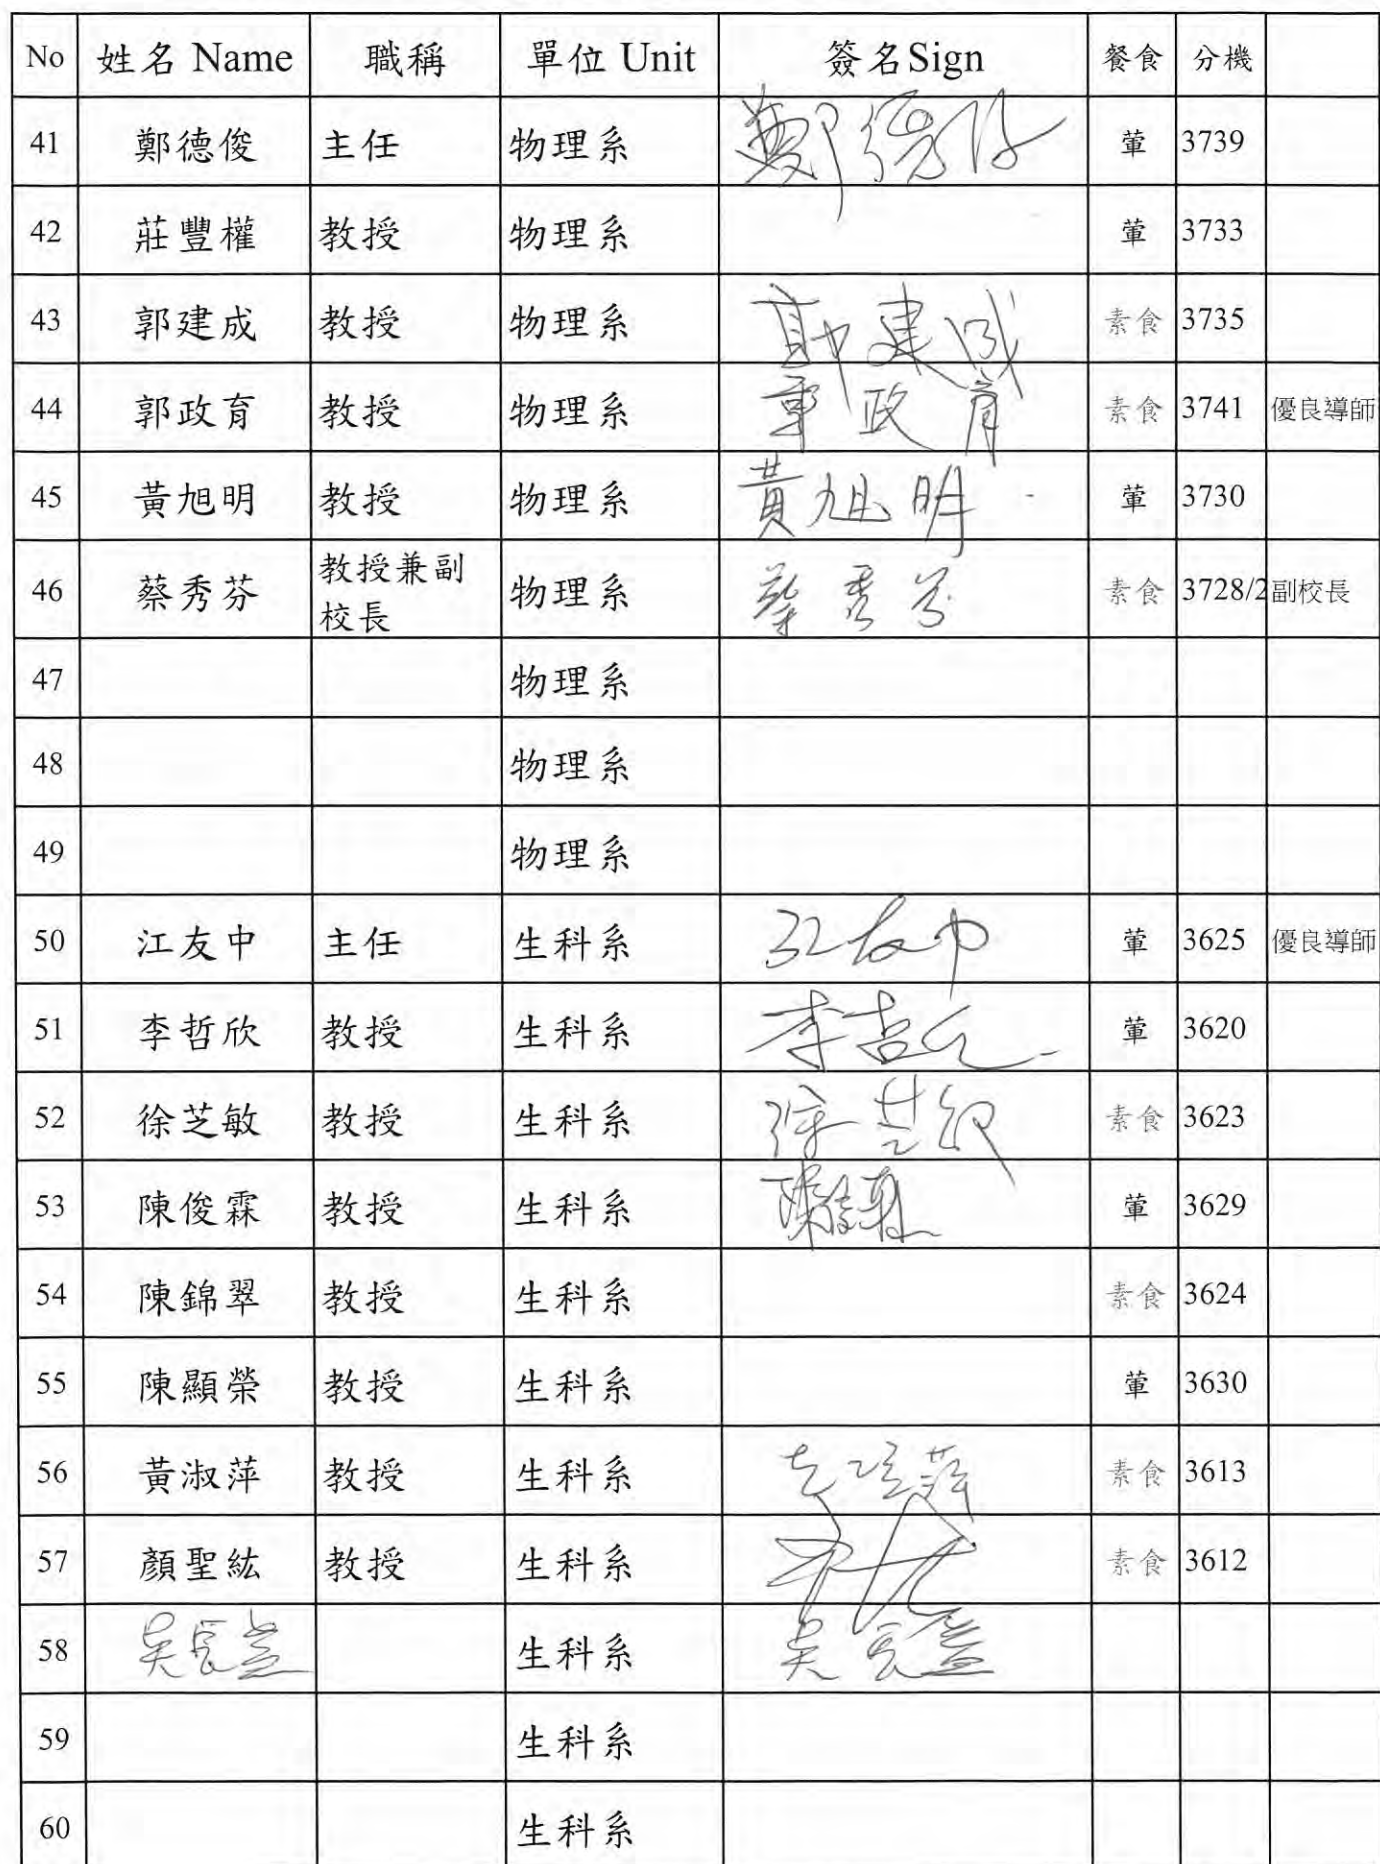 No 姓名 Name 職稱 單位 Unit 簽名Sign 餐食 分機
41 鄭德俊 主任 物理系 鄭德俊 葷 3739
42 莊豐權 教授 物理系 葷 3733
43 郭建成 教授 物理系 郭建成 素食 3735
44 郭政育 教授 物理系 郭政育 素食 3741 優良導師
45 黃旭明 教授 物理系 黃旭明 葷 3730
46 蔡秀芬 教授兼副 物理系 蔡秀芬 素食 3728/2 副校長
校長
47 物理系
48 物理系
49 物理系
50 江友中 主任 生科系 江友中 葷 3625 優良導師
51 李哲欣 教授 生科系 李哲欣 葷 3620
52 徐芝敏 教授 生科系 徐芝敏 素食 3623
53 陳俊霖 教授 生科系 陳俊霖 葷 3629
54 陳錦翠 教授 生科系 素食 3624
55 陳顯榮 教授 生科系 葷 3630
56 黃淑萍 教授 生科系 素食 3613
57 顏聖紘 教授 生科系 素食 3612
58 吳長益 生科系 吳長益
59 生科系
60 生科系